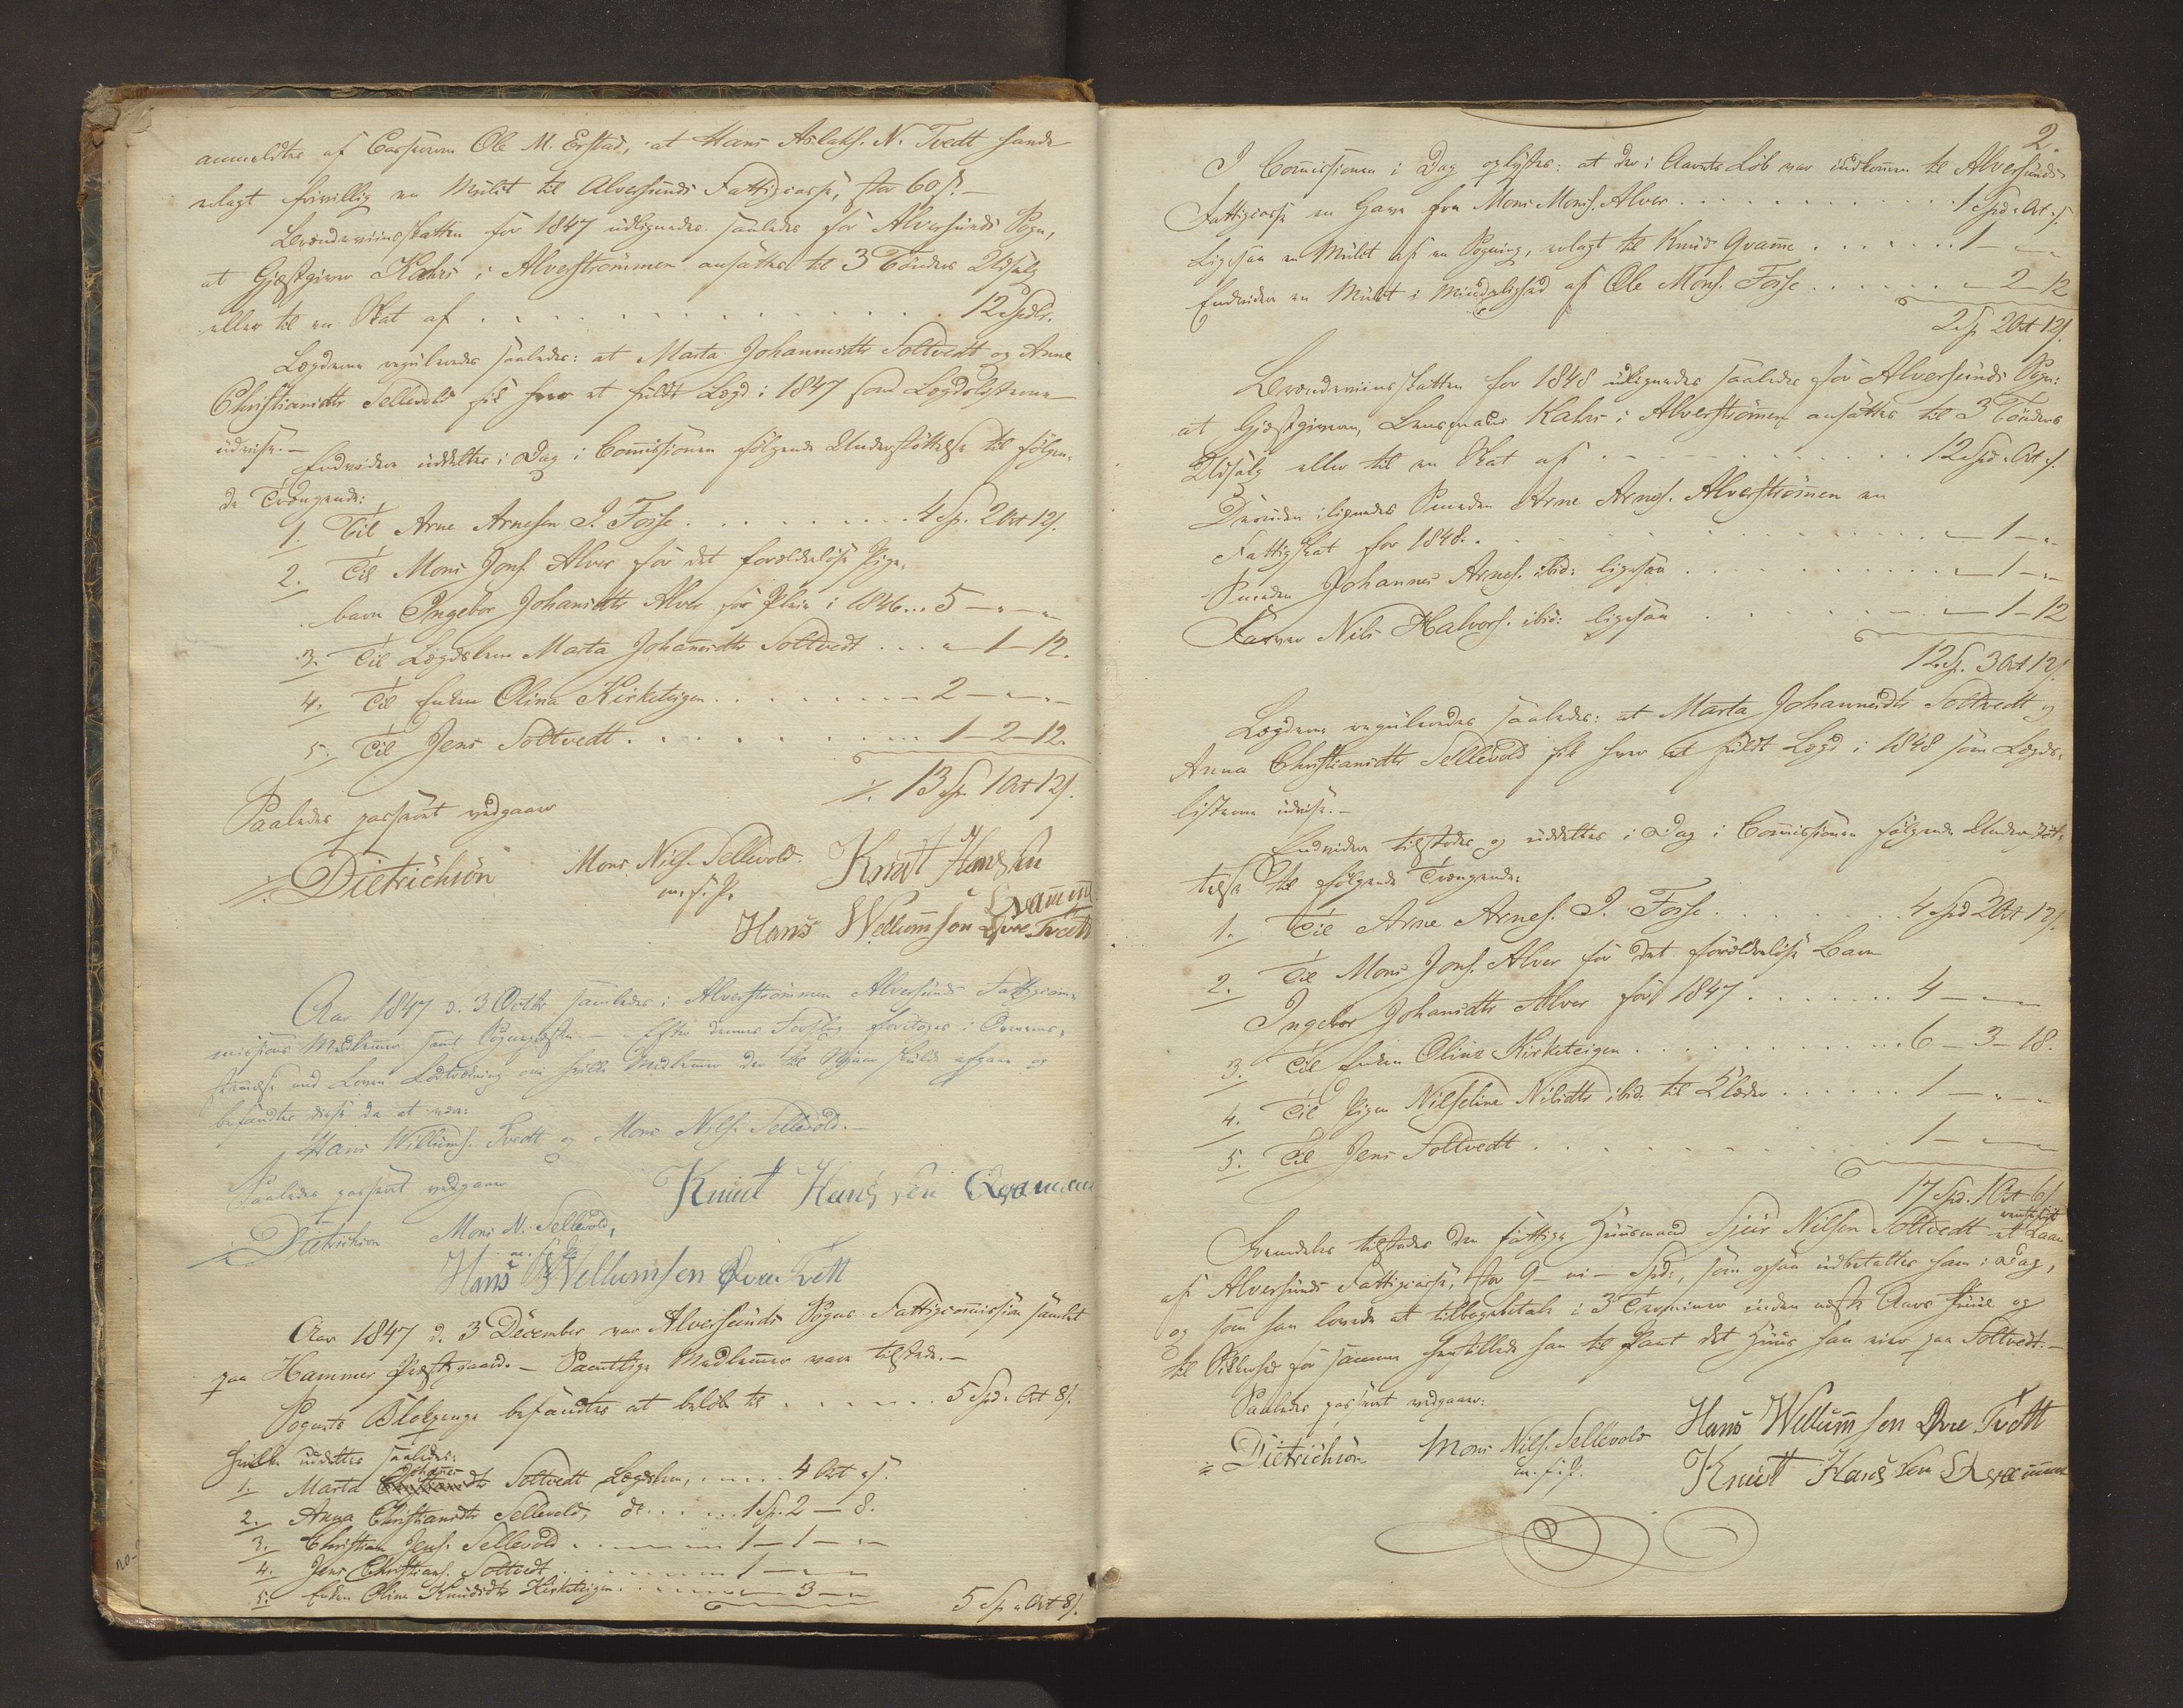 anmeldtes af Casserer Ole M. Erstad, at Hans Aslaks. N. Tvedt havde
erlagt frivillig en Mulct til Alversunds Fattigcasse, stor 60 s. –
Brændeviinsskatten for 1847 udlignedes saaledes for Alversunds Sogn,
at Gjæstgiver Kahrs i Alverstrømmen ansattes til 3 Tønders Udsalg
eller til en Skat af . . . . . . . . 12 Spdlr.
Lægderne reguleredes saaledes: at Marta Johannisdtr Soltvedt og Anne
Christiansdtr Sellevold fik hver et fuldt Lægd i 1847 som Lægdslisterne
udvise. –
Endvidere uddeltes i Dag i Commissionen følgende Understøttelse til følgen-
de Trængende:
1. Til Arne Arnesen I. Fosse . . . . . . 4 Sp. 2 Ort 12 s.
2. Til Mons Jons. Alver for det forældreløse Pige-
barn Ingebor Johansdtr Alver for Pleie i 1846 ... 5 – „ – „
3. Til Lægdslem Marta Johannisdtr Soltvedt . . . „ – 1 – 12.
4. Til Enken Olina Kirketeigen . . . . . . 2 – „ – „
5. Til Jens Soltvedt . . . . . . . . 1 – 2 – 12.
13 Sp. 1 Ort 12 s.
Saaledes passeret vedgaaer
Dietrichson Mons Nils. Sellevold. Knut Hansen
m. f. P. Qvamme
Hans Wellumsen Øvre Tvett
Aar 1847 d. 3 Octbr samledes i Alverstrømmen Alversunds Fattigcom-
missions Medlemmer samt Sognepræsten. – Efter dennes Forslag foretoges i Overens-
stemmelse med Loven Lodtrækning om hvilke Medlemmer der til Nytaar skulde afgaae og
befandtes disse da at være:
Hans Willums. Tvedt og Mons Nils. Sellevold. –
Saaledes passeret vedgaaer
Dietrichson Mons N. Sellevold, Knut Hansen Qvamme
m. f. P.
Hans Wellumsen Øvre Tvett
Aar 1847 d. 3 December var Alversunds Sogns Fattigcommission samlet
paa Hammer Præstegaard. – Samtlige Medlemmer vare tilstede. –
Sognets Blokpenge befandtes at beløbe til . . . . . . 5 Spd. „ Ort 8 s.
hvilke uddeltes saaledes:
1. Marta Johannesdtr Soltvedt Lægdslem, . . . . 4 Ort „ s.
2. Anna Christiansdtr Sellevold, do . . . . 1 Sp. 2 – 8.
3. Christian Jens. Sellevold . . . . 1 – 1 – „
4. Jens Christians. Soltvedt . . . . 1 – „ – „
5. Enken Olina Knudsdtr Kirketeigen . . . . „ – 3 – „
5 Sp „ Ort 8 s.
2.
I Commissionen i Dag oplystes: at der i Aarets Løb var indkommen til Alversunds
Fattigcasse en Gave fra Mons Mons. Alver . . . . . . 1 Spd. „ Ort „ s.
Ligesaa en Mulct af en Sogning, erlagt til Knud Qvamme . . . . . 1 – „
Endvidere en Mulct i Mindelighed af Ole Mons. Fosse . . . . . „ – 2 – 12
2 Sp. 2 Ort 12 s.
Brændeviinsskatten for 1848 udlignedes saaledes for Alversunds Sogn:
at Gjæstgiveren, Lensmand Kahrs i Alverstrømmen ansattes til 3 Tønders
Udsalg eller til en Skat af . . . . . . . . 12 Spd. „ Ort „ s.
Desuden ilignedes Smeden Arne Arnes. Alverstrømmen en
Fattigskat for 1848 . . . . . . . . „ – 1 – „
Smeden Johannes Arnes. ibid: ligesaa . . . . . . „ – 1 – „
Farver Nils Halvors. ibid: ligesaa . . . . . . „ – 1 – 12
12 Sp. 3 Ort 12 s.
Lægderne reguleredes saaledes: at Marta Johannesdtr Soltvedt og
Anna Christiansdtr Sellevold fik hver et fuldt Lægd i 1848 som Lægds-
listerne udvise. –
Endvidere tilstodes og uddeltes i Dag i Commissionen følgende Understøt-
telse til følgende Trængende:
1. Til Arne Arnes. I. Fosse . . . . . . 4 Spd 2 Ort 12 s.
2. Til Mons Jons. Alver for det forældreløse Barn
Ingebor Johansdtr Alver for 1847 . . . . . . 4 – „ – „
3. Til Enken Olina Kirketeigen . . . . . . 6 – 3 – 18.
4. Til Pigen Nilseline Nilsdtr ibid. til Klæder . . . . . 1 – „ – „
5. Til Jens Soltvedt . . . . . . . . 1 – „ – „
17 Spd. 1 Ort 6 s.
Fremdeles tilstodes den fattige Huusmand Sjur Nilsen Soltvedt et rentefrit Laan
af Alversunds Fattigcasse, stor 9 – ni – Spd:, som ogsaa udbetaltes ham i Dag,
og som han lovede at tilbagebetale i 3 Terminer inden næste Aars Juul og
til Sikkerhed for samme fremstillede han til Pant det Huus han eier paa Soltvedt. –
Saaledes passeret vedgaaer:
Dietrichson Mons Nils. Sellevold Hans Wellumsen Øvre Tvett
m. f. P. Knut Hansen Qvamme